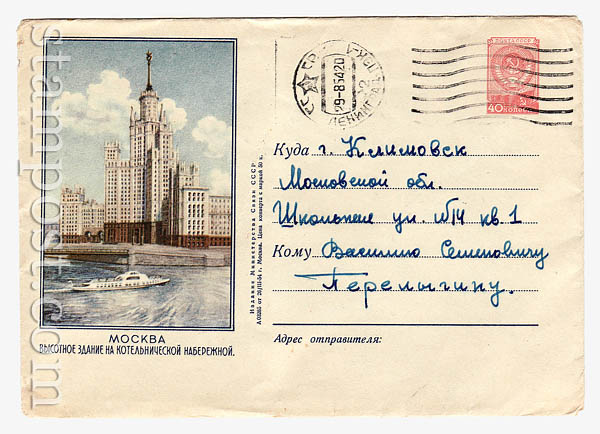 СССР
ЛЕНИНГРАД
29-8-54 20
ПОЧТА СССР
40 КОПЕЕК
Куда г. Климовск
Московской обл.
Школьная ул. №14 кв. 1
Кому Василию Семеновичу
Перелыгину.
Адрес отправителя:
Издание Министерства Связи СССР
от 26/III-54 г. Москва. Цена конверта с маркой 50 к.
МОСКВА
ВЫСОТНОЕ ЗДАНИЕ НА КОТЕЛЬНИЧЕСКОЙ НАБЕРЕЖНОЙ.
stampost.com